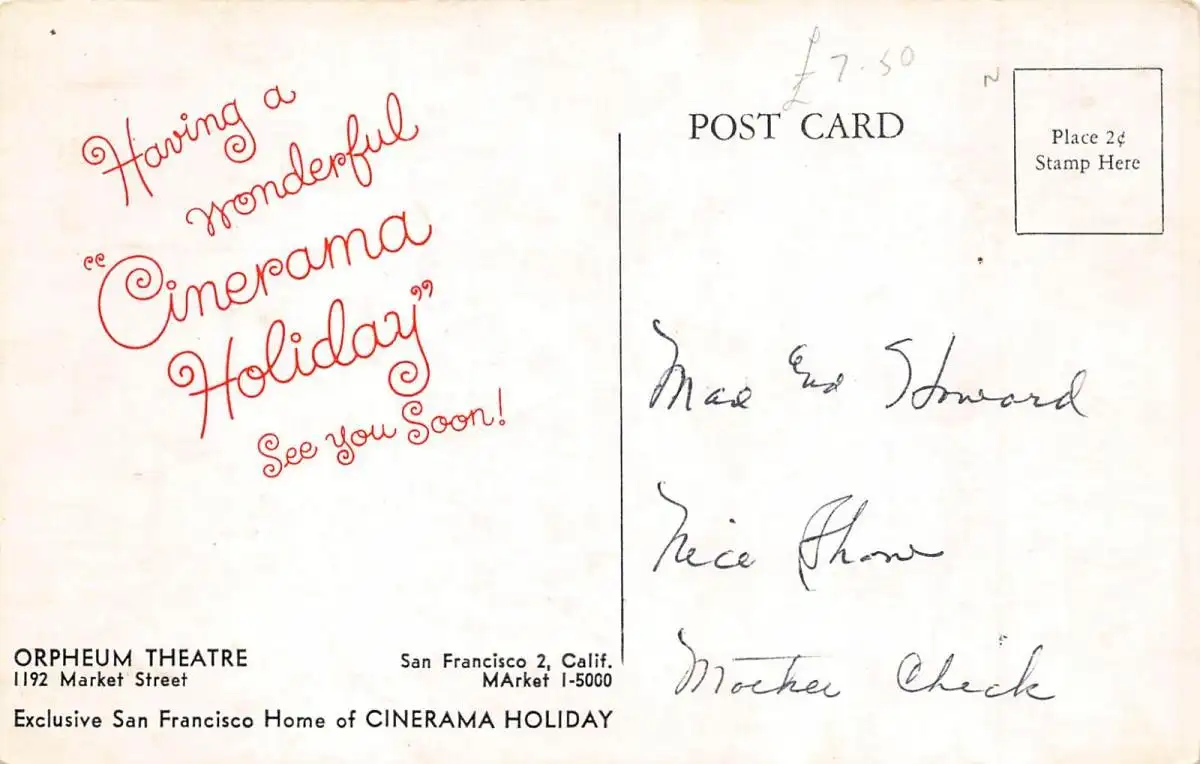 Having a
wonderful
"Cinerama
Holiday"
See you Soon!
ORPHEUM THEATRE
1192 Market Street
San Francisco 2, Calif.
MArket 1-5000
Exclusive San Francisco Home of CINERAMA HOLIDAY
£7.50
N
POST CARD
Place 2¢
Stamp Here
Mae End Howard
Nice Show
Mother Chick